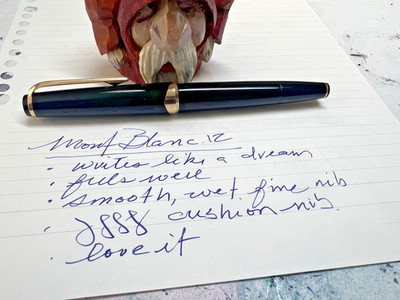 Mont Blanc 12
· writes like a dream
· feels well
· smooth, wet fine nib
· cushion nib.
· love it